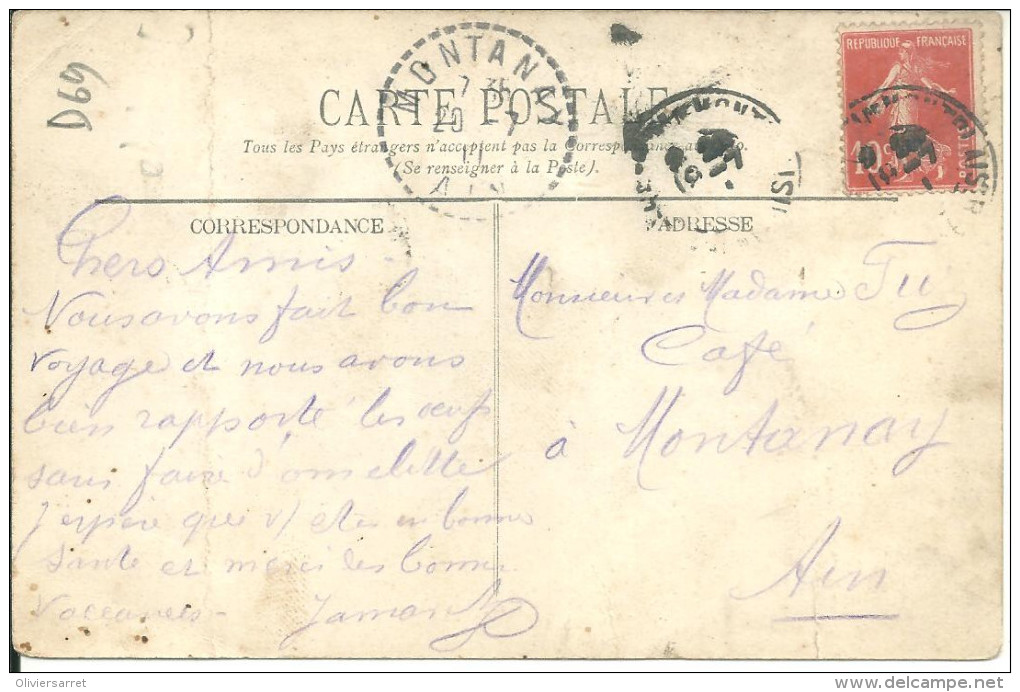 D69
MONTANAY
7 35
20 - 7
11
AIN
REPUBLIQUE FRANÇAISE
10
CARTE POSTALE
Tous les Pays étrangers n'acceptent pas la Correspondance au
(Se renseigner à la Poste).
CORRESPONDANCE
Chers Amis -
Nous avons fait bon
voyage et nous avons
bien rapporté les oeufs
sans faire d'omelette
J'espère que v/ êtes en bonne
santé et merci des bonnes
vaccances -
ADRESSE
Monsieur et Madame
Café
à Montanay
Ain
Oliviersarret
www.delcampe.net